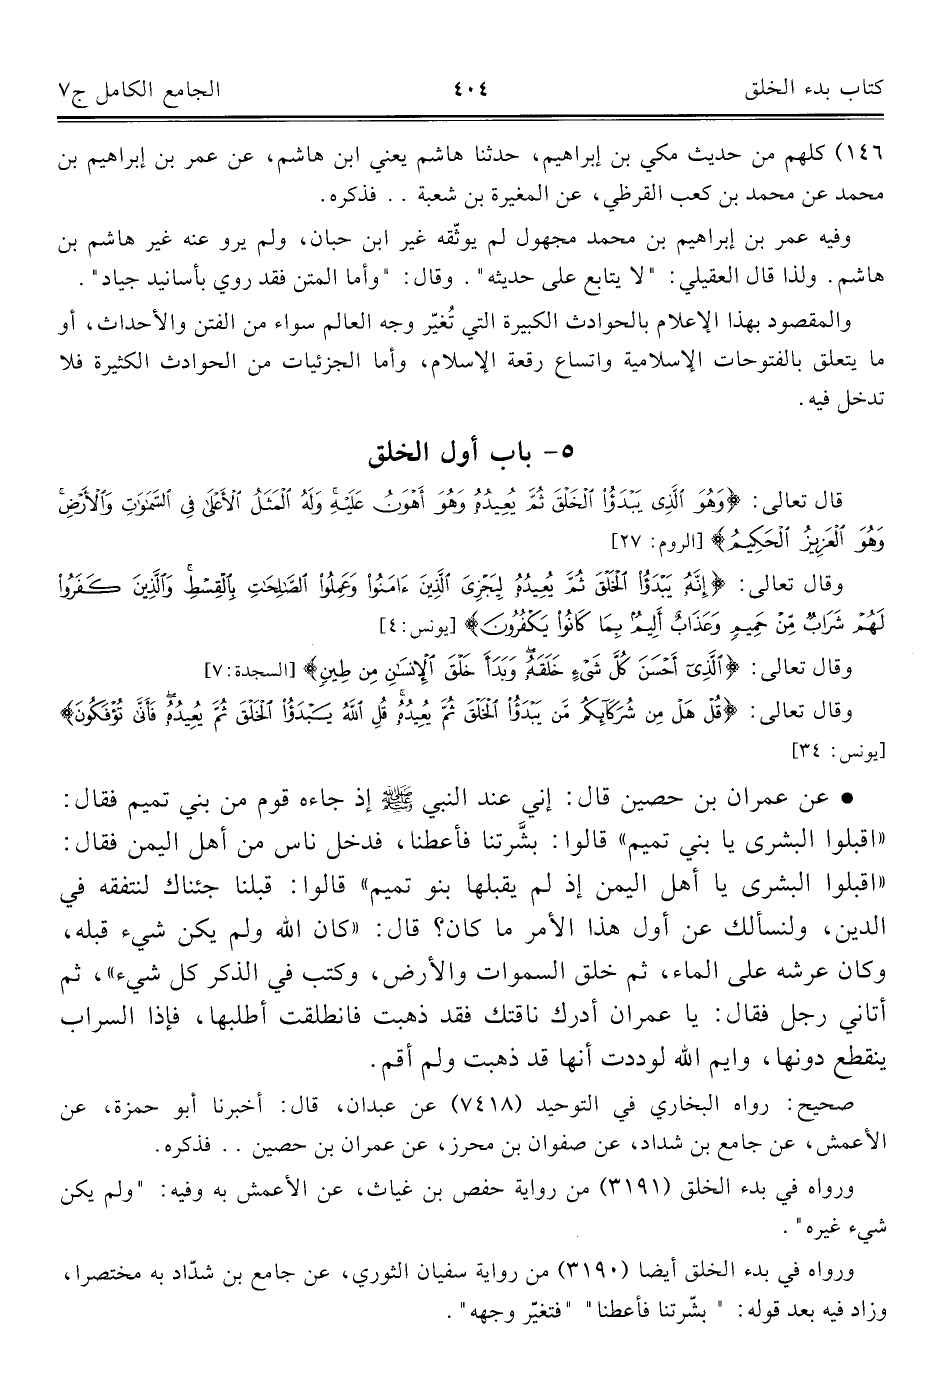 كتاب بدء الخلق ٤٠٤ الجامع الكامل ج٧
١٤٦) كلهم من حديث مكي بن إبراهيم، حدثنا هاشم يعني ابن هاشم، عن عمر بن إبراهيم بن
محمد عن محمد بن كعب القرظي، عن المغيرة بن شعبة .. فذكره.
وفيه عمر بن إبراهيم بن محمد مجهول لم يوثّقه غير ابن حبان، ولم يرو عنه غير هاشم بن
هاشم. ولذا قال العقيلي: "لا يتابع على حديثه". وقال: "وأما المتن فقد روي بأسانيد جياد".
والمقصود بهذا الإعلام بالحوادث الكبيرة التي تُغيّر وجه العالم سواء من الفتن والأحداث، أو
ما يتعلق بالفتوحات الإسلامية واتساع رقعة الإسلام، وأما الجزئيات من الحوادث الكثيرة فلا
تدخل فيه.
٥- باب أول الخلق
قال تعالى: ﴿وَهُوَ ٱلَّذِى يَبْدَؤُا۟ ٱلْخَلْقَ ثُمَّ يُعِيدُهُۥ وَهُوَ أَهْوَنُ عَلَيْهِ ۚ وَلَهُ ٱلْمَثَلُ ٱلْأَعْلَىٰ فِى ٱلسَّمَٰوَٰتِ وَٱلْأَرْضِ ۚ
وَهُوَ ٱلْعَزِيزُ ٱلْحَكِيمُ﴾ [الروم: ٢٧]
وقال تعالى: ﴿إِنَّهُۥ يَبْدَؤُا۟ ٱلْخَلْقَ ثُمَّ يُعِيدُهُۥ لِيَجْزِىَ ٱلَّذِينَ ءَامَنُوا۟ وَعَمِلُوا۟ ٱلصَّٰلِحَٰتِ بِٱلْقِسْطِ ۚ وَٱلَّذِينَ كَفَرُوا۟
لَهُمْ شَرَابٌ مِّنْ حَمِيمٍ وَعَذَابٌ أَلِيمٌۢ بِمَا كَانُوا۟ يَكْفُرُونَ﴾ [يونس: ٤]
وقال تعالى: ﴿ٱلَّذِىٓ أَحْسَنَ كُلَّ شَىْءٍ خَلَقَهُۥ ۖ وَبَدَأَ خَلْقَ ٱلْإِنسَٰنِ مِن طِينٍ﴾ [السجدة: ٧]
وقال تعالى: ﴿قُلْ هَلْ مِن شُرَكَآئِكُم مَّن يَبْدَؤُا۟ ٱلْخَلْقَ ثُمَّ يُعِيدُهُۥ ۚ قُلِ ٱللَّهُ يَبْدَؤُا۟ ٱلْخَلْقَ ثُمَّ يُعِيدُهُۥ ۖ فَأَنَّىٰ تُؤْفَكُونَ﴾
[يونس: ٣٤]
● عن عمران بن حصين قال: إني عند النبي ﷺ إذ جاءه قوم من بني تميم فقال:
«اقبلوا البشرى يا بني تميم» قالوا: بشَّرتنا فأعطنا، فدخل ناس من أهل اليمن فقال:
«اقبلوا البشرى يا أهل اليمن إذ لم يقبلها بنو تميم» قالوا: قبلنا جئناك لنتفقه في
الدين، ولنسألك عن أول هذا الأمر ما كان؟ قال: «كان الله ولم يكن شيء قبله،
وكان عرشه على الماء، ثم خلق السموات والأرض، وكتب في الذكر كل شيء»، ثم
أتاني رجل فقال: يا عمران أدرك ناقتك فقد ذهبت فانطلقت أطلبها، فإذا السراب
ينقطع دونها، وايم الله لوددت أنها قد ذهبت ولم أقم.
صحيح: رواه البخاري في التوحيد (٧٤١٨) عن عبدان، قال: أخبرنا أبو حمزة، عن
الأعمش، عن جامع بن شداد، عن صفوان بن محرز، عن عمران بن حصين .. فذكره.
ورواه في بدء الخلق (٣١٩١) من رواية حفص بن غياث، عن الأعمش به وفيه: "ولم يكن
شيء غيره".
ورواه في بدء الخلق أيضا (٣١٩٠) من رواية سفيان الثوري، عن جامع بن شدّاد به مختصرا،
وزاد فيه بعد قوله: " بشّرتنا فأعطنا" "فتغيّر وجهه".